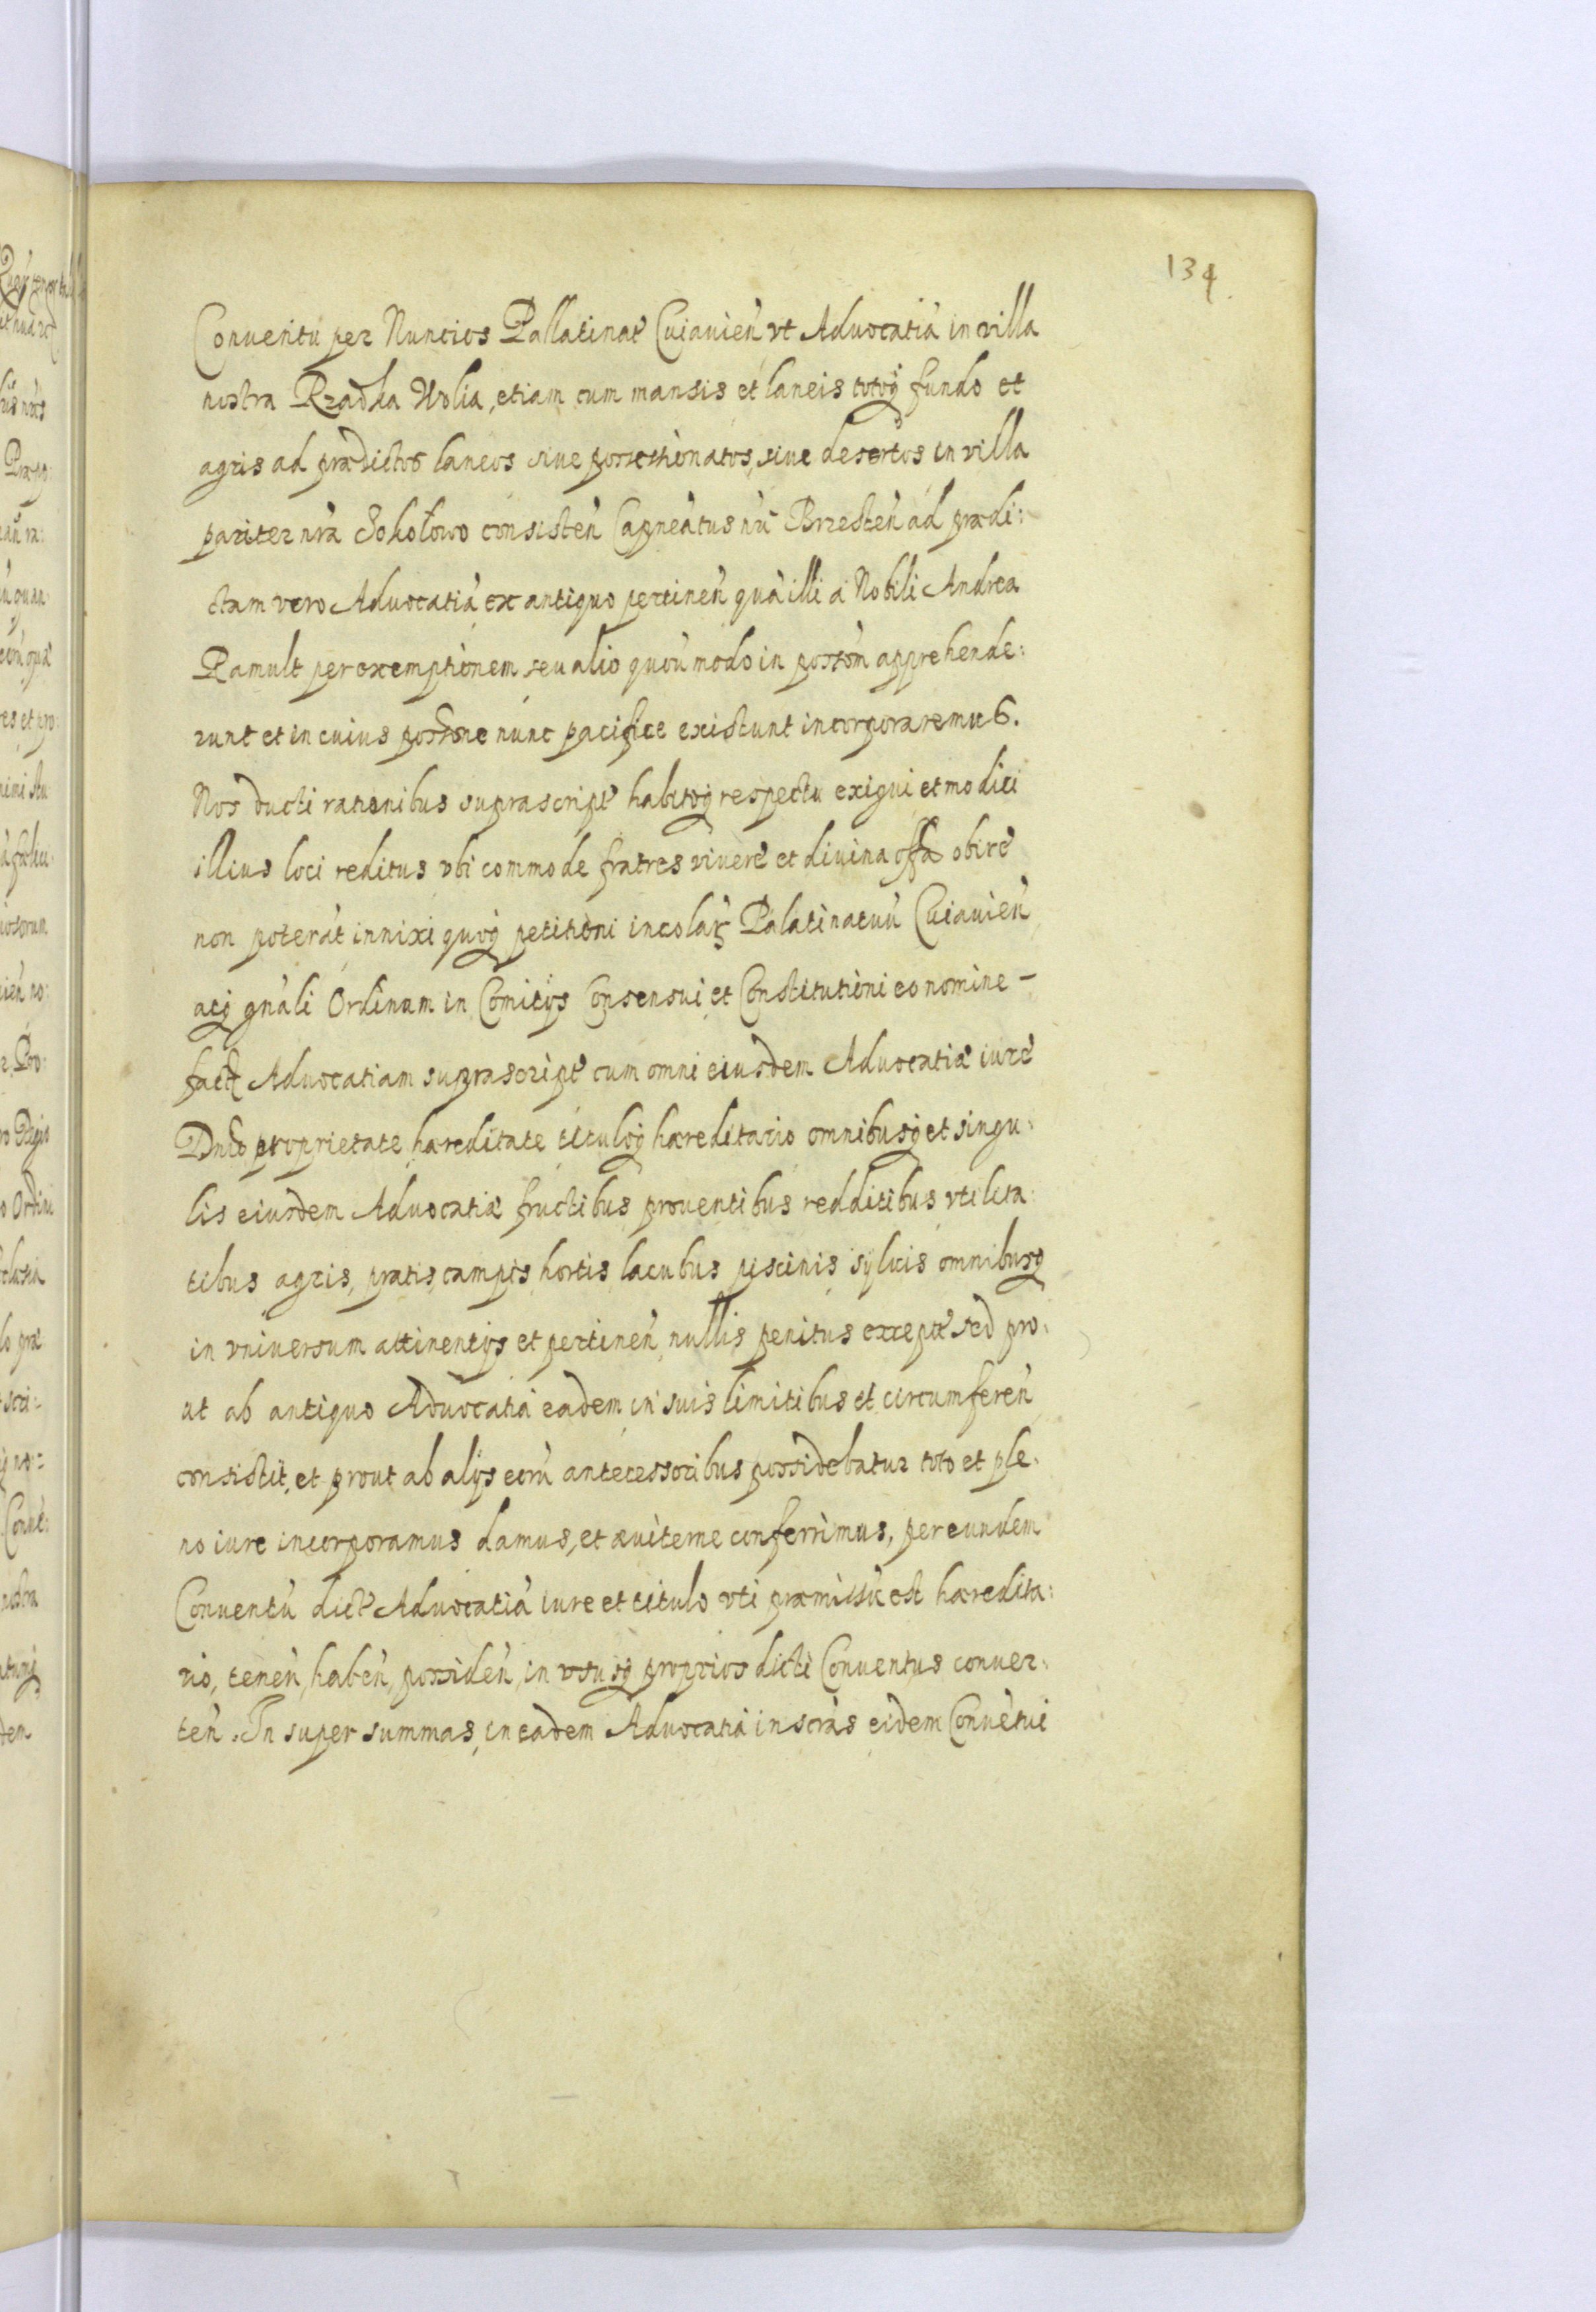 134
Conuentũ per Nuncios Pallatinat Cuiauień vt Advocatiã in villa
nostra Rzadka Wolia, etiam cum mansis et laneis totoq fundo et
agris ad prædictos laneos siue possessionatos, siue desertos in villa
pariter nrã Sokołowo consisteń Capneatus nři Brzesteń ad prædi:
ctam vero Advocatiã ex antiquo pertineń quã illi a Nobili Andrea
Ramult per exemptionem seu alio quoũ modo in possõm apprehende:
runt et in cuius possone nunc pacifice existunt incorporaremus.
Nos ducti rationibus suprascript habitoq respectu exigui et modici
illius loci reditus vbi commode fratres viuere et diuina offa obire
non poterãt innixi quoq petitioni incolaꝝ Palatinatuũ Cuiauień
atq gnãli Ordinum in Comitijs Consensui et Constitutioni eo nomine –
fact Advocatiam suprascript cum omni eiusdem Advocatiæ iure
Dnio proprietate hæreditate tituloq hæreditario omnibusq et singu:
lis eiusdem Advocatiæ fructibus prouentibus redditibus vtilita:
tibus agris, pratis, campis, hortis, lacubus piscinis, syluis omnibusq
in vniuersum attinentijs et pertineń, nullis penitus except sed pro:
ut ab antiquo Advocatia eadem in suis limitibus et circumfereń
consistit, et prout ab alijs eorũ antecessoribus possidebatur toto et ple:
no iure incorporamus damus, et æuiterne conferrimus, per eundem
Conuentũ dict Advocatiã iure et titulo vti præmissũ est hæredita:
rio, teneń, habeń, possideń, in vsusq proprios dicti Conuentus conuer:
teń. In super summas, in eadem Advocatia inscrãs eidem Conuẽtui